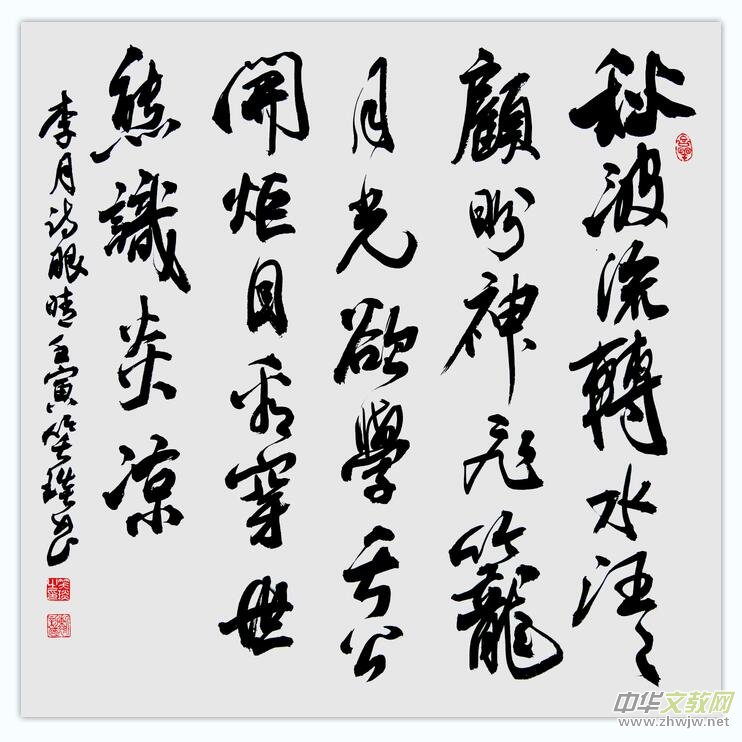 秋波流轉水汪汪
顧盼神飛籠
月光欲學天公
開炬目看穿世
態識炎涼
李月诗眼睛壬寅笑書
中华文教网
www.zhwjw.net